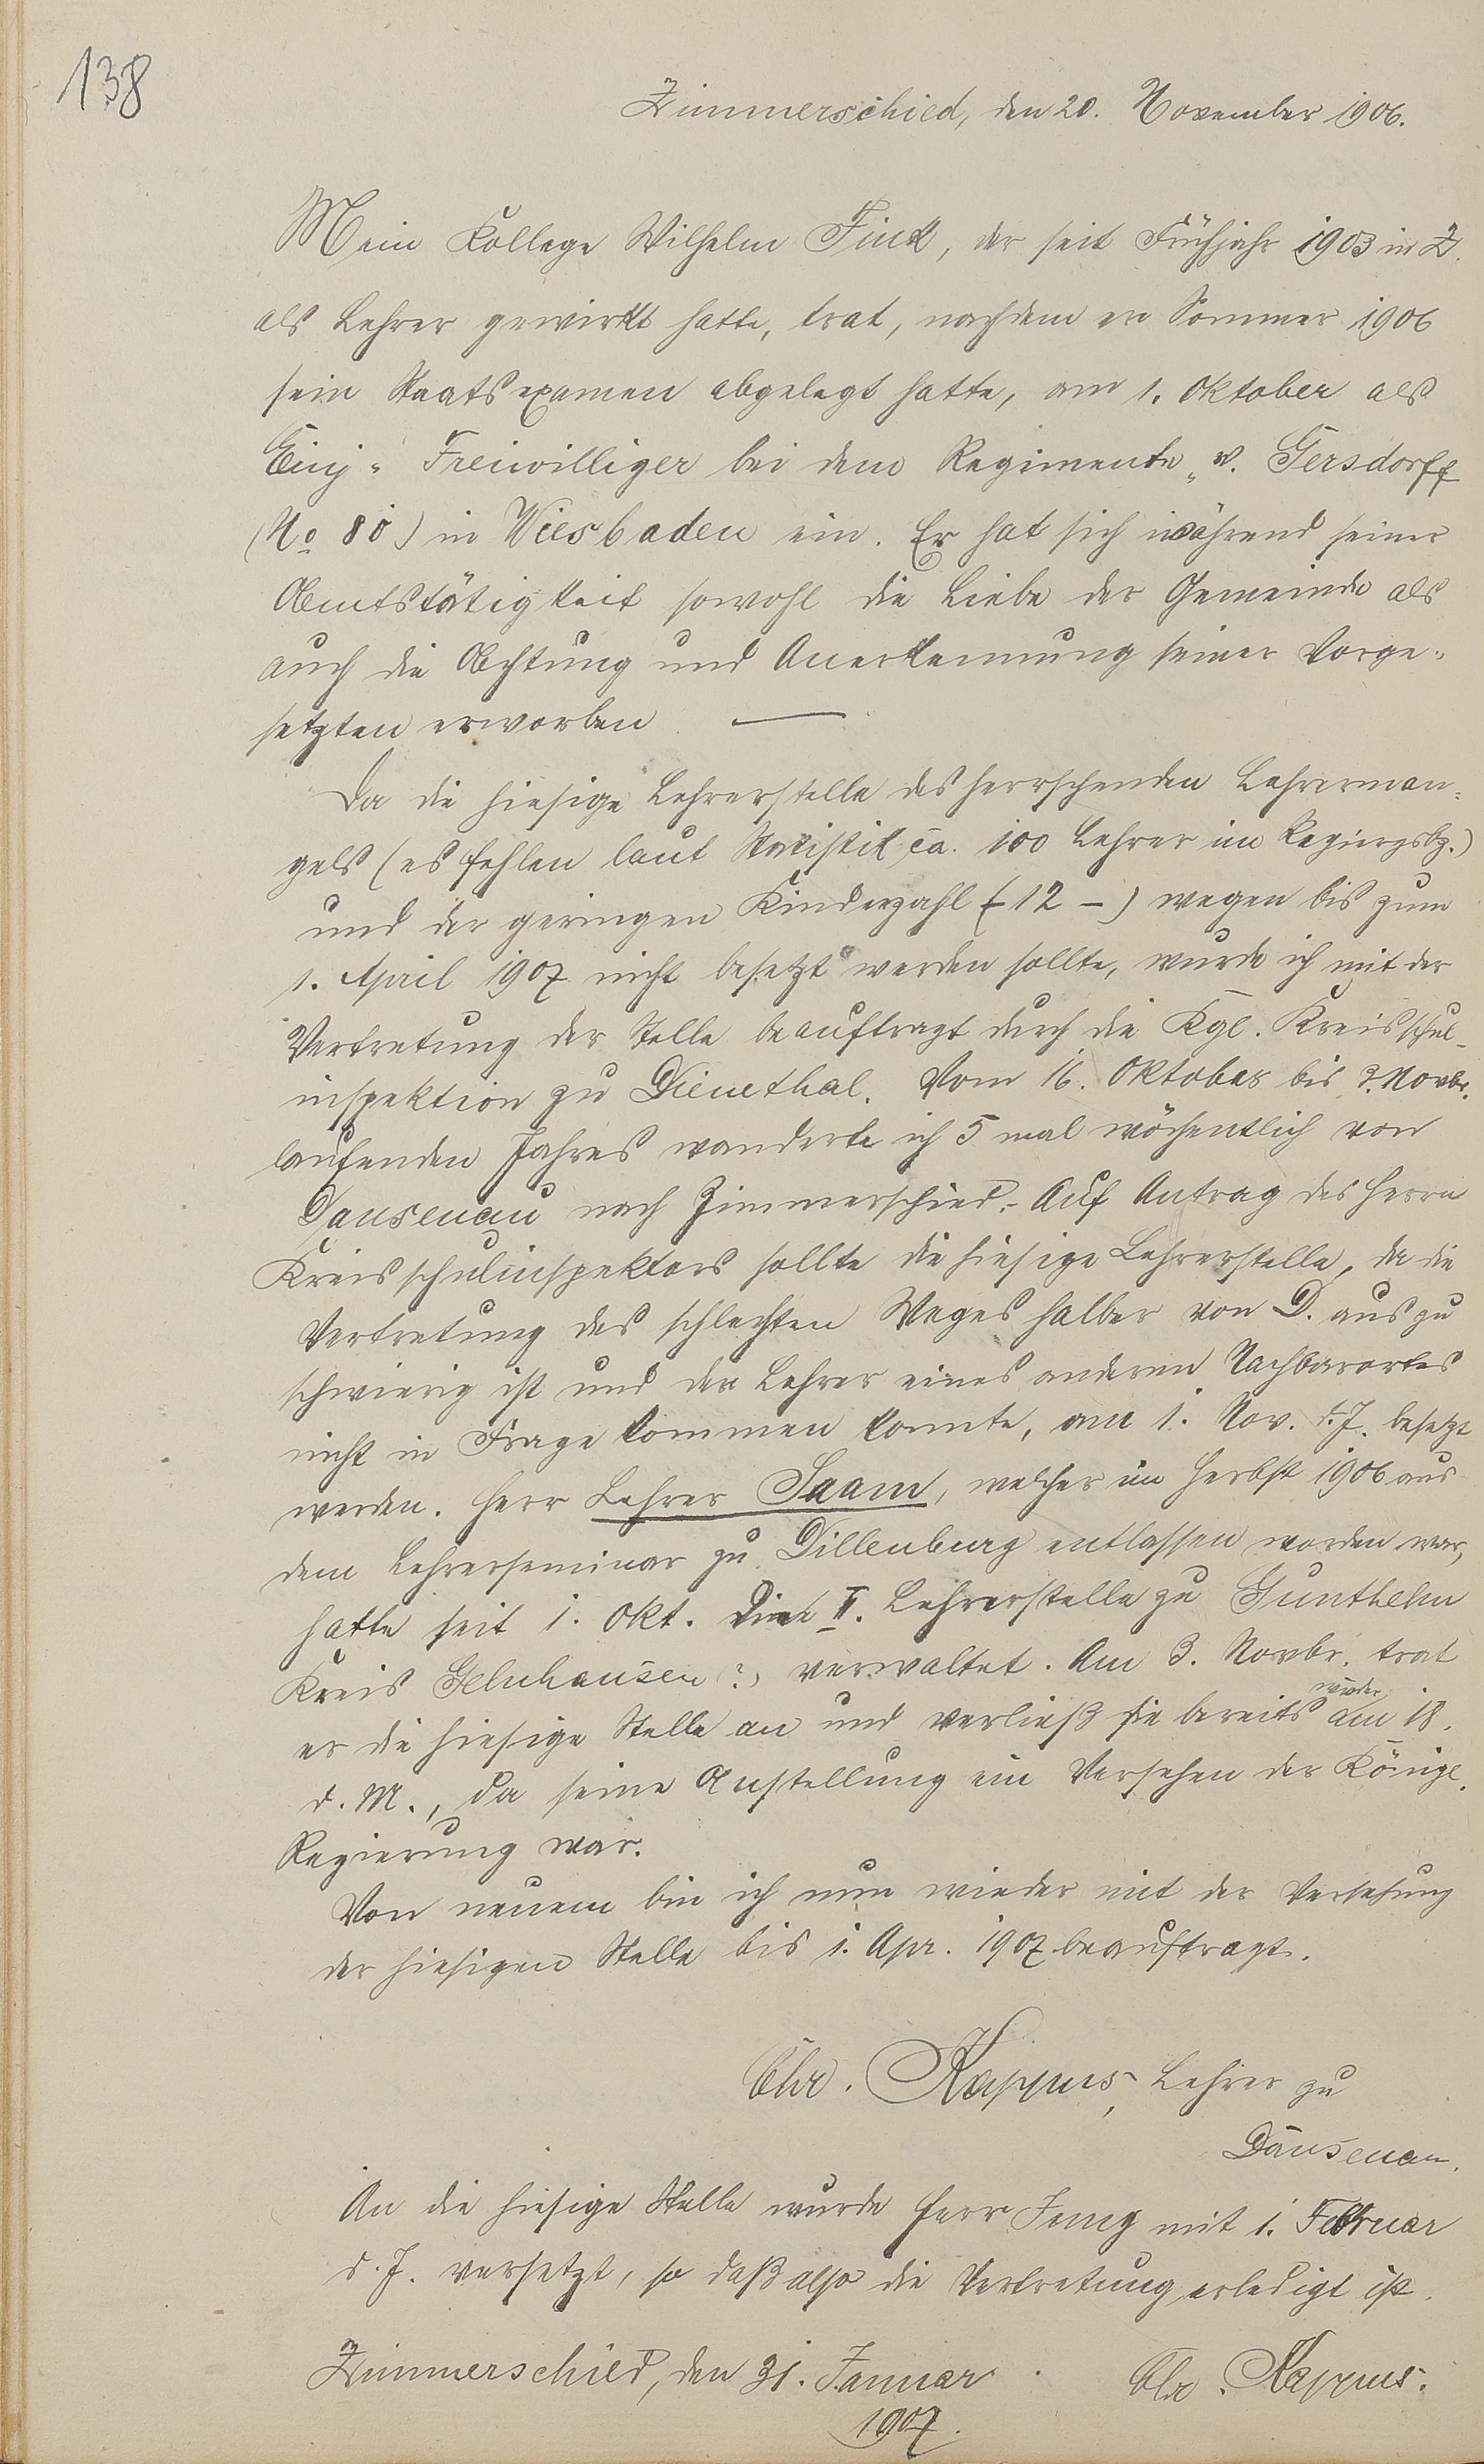 138
Zimmerschied, den 20. November 1906.
Mein Kollege Wilhelm Fink, der seit Frühjahr 1903 in Z.
als Lehrer gewirkt hatte, trat, nachdem er Sommer 1906
sein Staatsexamen abgelegt hatte, am 1. Oktober als
Einj.-Freiwilliger bei dem Regimente „v. Gersdorff
(No 80) in Wiesbaden ein. Er hat sich während seiner
Amtstätigkeit sowohl die Liebe der Gemeinde als
auch die Achtung und Anerkennung seiner Vorge-
setzten erworben. —
Da die hiesige Lehrerstelle des herrschenden Lehrerman-
gels (es fehlen laut Statistik ca. 100 Lehrer im Regirgsbz.)
und der geringen Kinderzahl (12 –) wegen bis zum
1. April 1907 nicht besetzt werden sollte, wurde ich mit der
Vertretung der Stelle beauftragt durch die Kgl. Kreisschul-
inspektion zu Dienethal. Vom 16. Oktober bis 3. Novbr.
laufenden Jahres wanderte ich 5 mal wöchentlich von
Dausenau nach Zimmerschied. - Auf Antrag des Herrn
Kreisschulinspektors sollte die hiesige Lehrerstelle, da die
Vertretung des schlechten Weges halber von D. aus zu
schwierig ist und der Lehrer eines anderen Nachbarortes
nicht in Frage kommen konnte, am 1. Nov. d. J. besetzt
werden. Herr Lehrer Saam, welcher im Herbst 1906 aus
dem Lehrerseminar zu Dillenburg entlassen worden war,
hatte seit 1. Okt. die II. Lehrerstelle zu Gunthelm
Kreis Gelnhausen (?) verwaltet. Am 3. Novbr. trat
er die hiesige Stelle an und verließ sie bereits wieder am 18.
d. M., da seine Anstellung ein Versehen der Königl.
Regierung war.
Von neuem bin ich nun wieder mit der Versehung
der hiesigen Stelle bis 1. Apr. 1907 beauftragt.
Chr. Kappus, Lehrer zu
Dausenau.
An die hiesige Stelle wurde Herr Jung mit 1. Februar
d. J. versetzt, so daß also die Vertretung erledigt ist.
Zimmerschied, den 31. Januar Chr. Kappus.
1907.